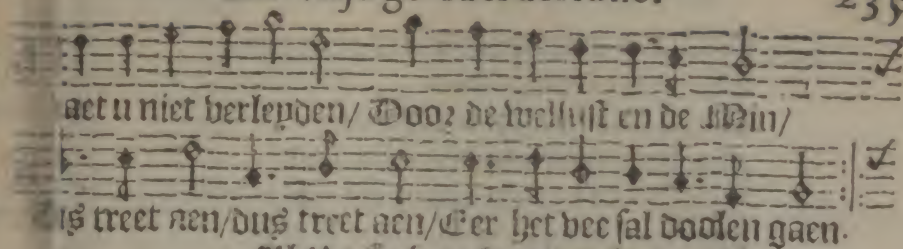 235
aet u niet verleyden/ Door de wellust en de Min/
us treet aen/dus treet aen/Eer het vee sal doolen gaen.